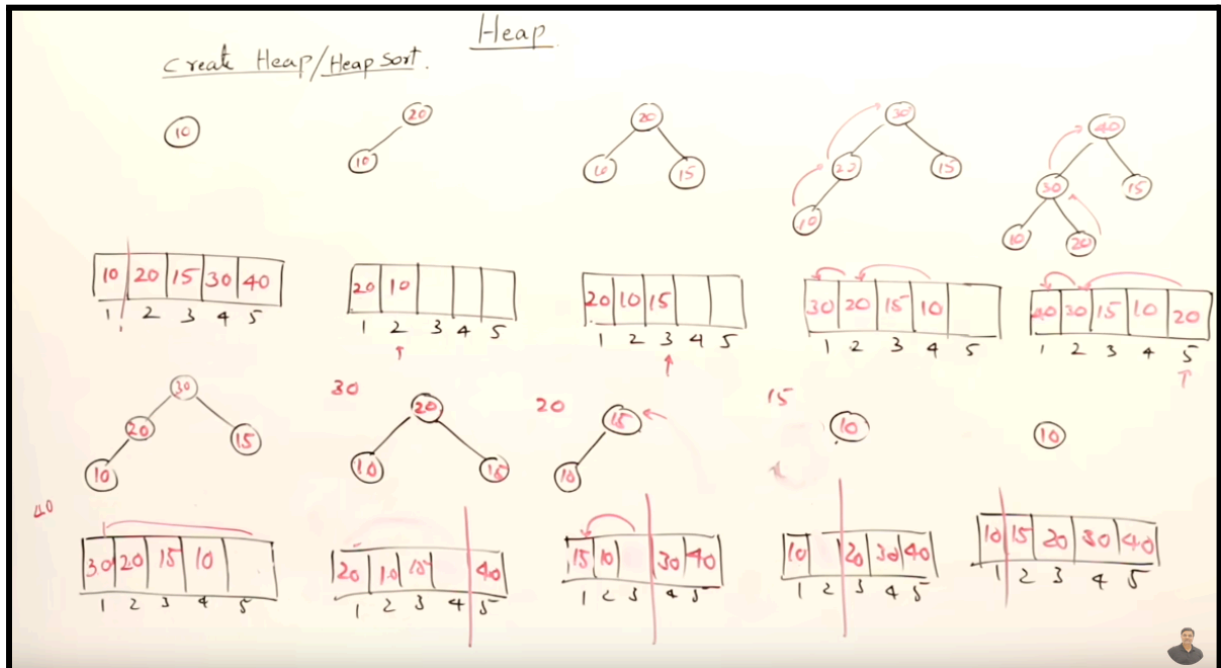 Heap
Create Heap/Heap Sort.
10
20
10
20
10 15
30
20 15
10
40
30 15
10 20
10 20 15 30 40
1 2 3 4 5
20 10
1 2 3 4 5
20 10 15
1 2 3 4 5
30 20 15 10
1 2 3 4 5
40 30 15 10 20
1 2 3 4 5
30
20 15
10
40
30 20 15 10
1 2 3 4 5
30
20
10 15
20 10 15 40
1 2 3 4 5
20
15
10
15 10 30 40
1 2 3 4 5
15
10
10 20 30 40
1 2 3 4 5
10
10 15 20 30 40
1 2 3 4 5